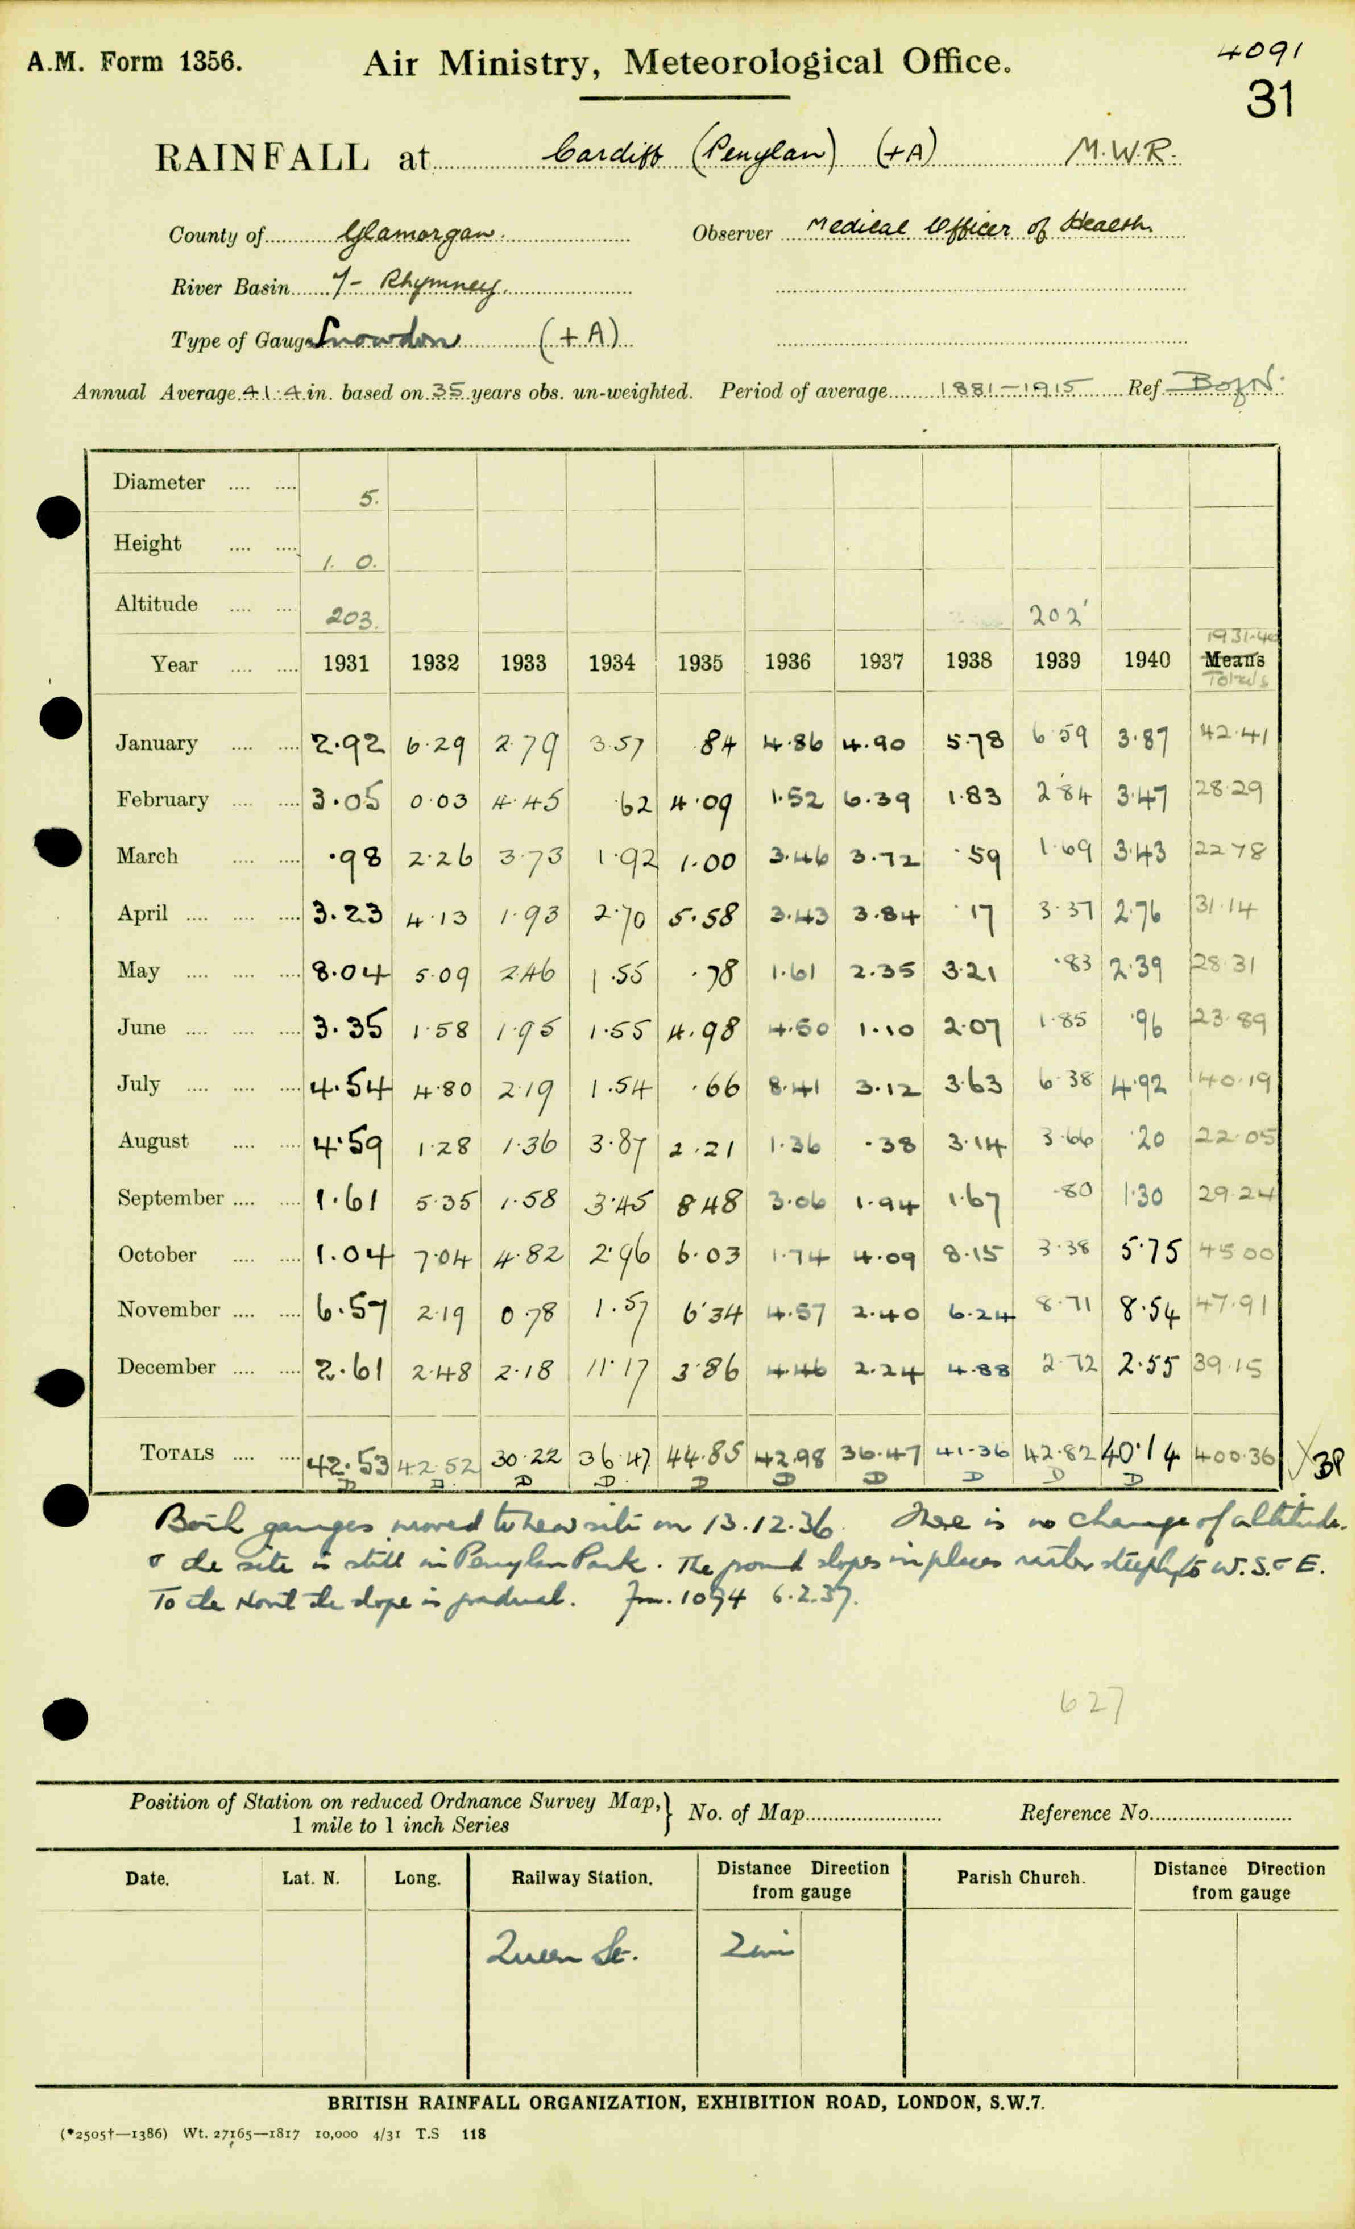 A.M. Form 1356.
Air Ministry, Meteorological Office.
4091
31
RAINFALL at Cardiff (Penylan) (+A) M.W.R.
County of Glamorgan. Observer Medical Officer of Health.
River Basin 7- Rhymney.
Type of Gauge Snowdon (+A)
Annual Average 41.4 in. based on 35 years obs. un-weighted. Period of average 1881-1915 Ref. B of N.
Diameter .... .... 5.
Height .... .... 1. 0.
Altitude .... .... 203. 202'
1931-40
Year .... .... 1931 1932 1933 1934 1935 1936 1937 1938 1939 1940 Means
Totals
January .... .... 2.92 6.29 2.79 3.57 .84 4.86 4.90 5.78 6.59 3.87 42.41
February .... .... 3.05 0.03 4.45 .62 4.09 1.52 6.39 1.83 2.84 3.47 28.29
March .... .... .98 2.26 3.73 1.92 1.00 3.46 3.72 .59 1.69 3.43 22.78
April .... .... .... 3.23 4.13 1.93 2.70 5.58 3.43 3.84 .17 3.37 2.76 31.14
May .... .... .... 8.04 5.09 2.46 1.55 .78 1.61 2.35 3.21 .83 2.39 28.31
June .... .... .... 3.35 1.58 1.95 1.55 4.98 4.50 1.10 2.07 1.85 .96 23.89
July .... .... .... 4.54 4.80 2.19 1.54 .66 8.41 3.12 3.63 6.38 4.92 40.19
August .... .... 4.59 1.28 1.36 3.87 2.21 1.36 .38 3.14 3.66 .20 22.05
September .... .... 1.61 5.35 1.58 3.45 8.48 3.06 1.94 1.67 .80 1.30 29.24
October .... .... 1.04 7.04 4.82 2.96 6.03 1.74 4.09 8.15 3.38 5.75 45.00
November .... .... 6.57 2.19 0.78 1.57 6.34 4.57 2.40 6.24 8.71 8.54 47.91
December .... .... 2.61 2.48 2.18 11.17 3.86 4.46 2.24 4.88 2.72 2.55 39.15
TOTALS .... .... 42.53 42.52 30.22 36.47 44.85 42.98 36.47 41.36 42.82 40.14 400.36
D D D D D D D D D D
Both gauges moved to new site on 13.12.36. There is no change of altitude.
& the site is still in Penylan Park. The ground slopes in places rather steeply to W. S. & E.
To the North the slope is gradual. Fm. 1094 6.2.37.
627
Position of Station on reduced Ordnance Survey Map,
1 mile to 1 inch Series
No. of Map
Reference No.
Date. Lat. N. Long. Railway Station. Distance Direction from gauge Parish Church. Distance Direction from gauge
Queen St. 2 mi
BRITISH RAINFALL ORGANIZATION, EXHIBITION ROAD, LONDON, S.W.7.
(*2505†—1386) Wt. 27165—1817 10,000 4/31 T.S 118